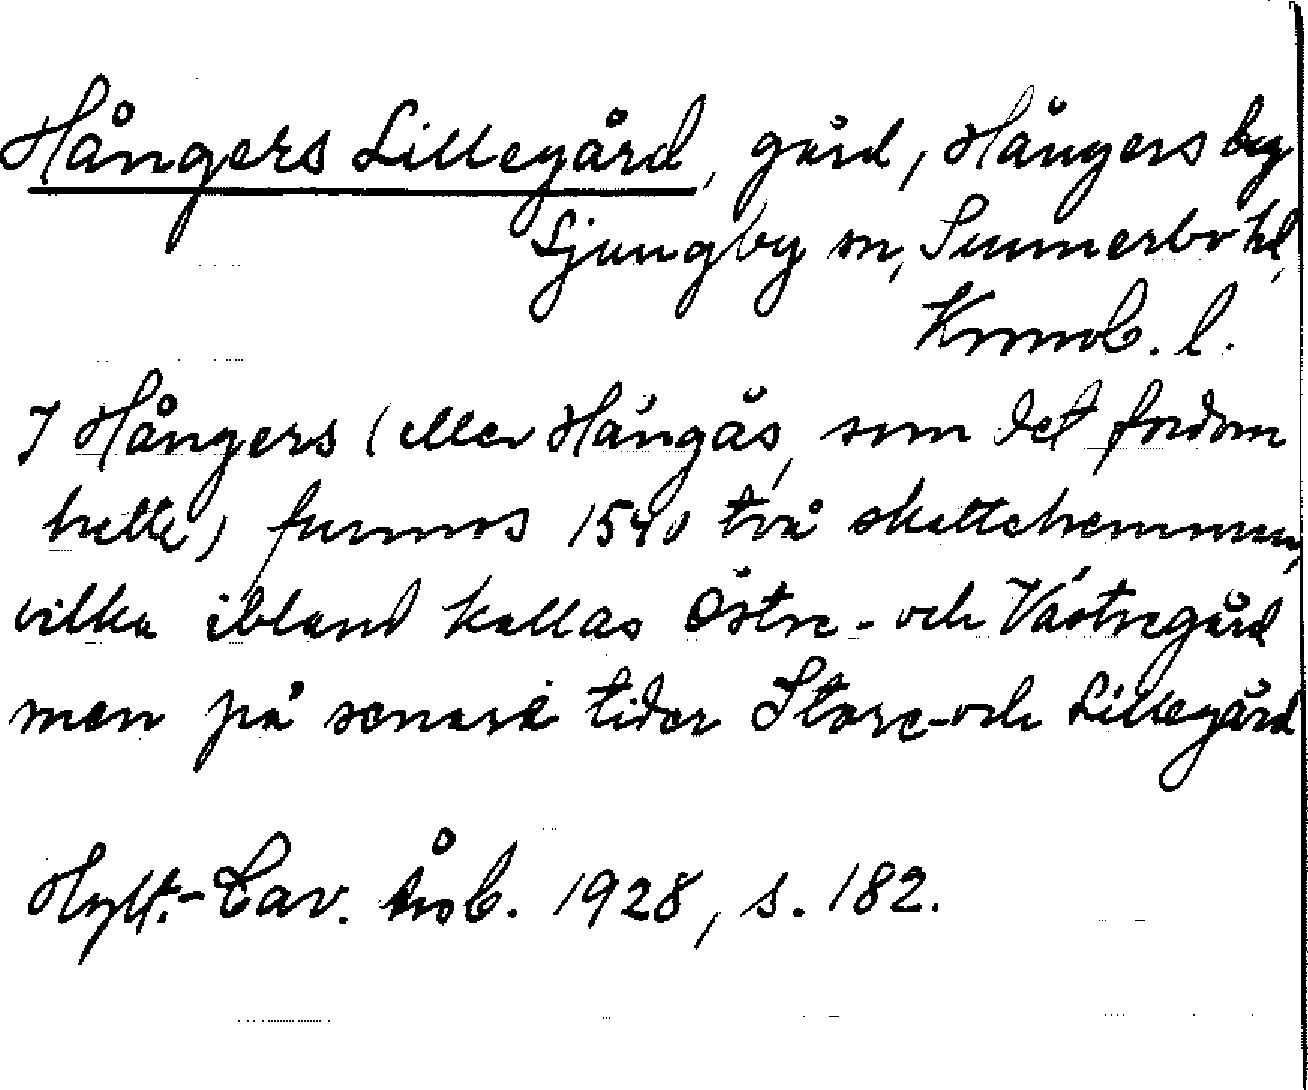 Hångers Lillegård, gård, Hångers by
Ljungby sn, Sunnerbo hd,
Kronob. l.
I Hångers (eller Hångås, som det fordom
hette) funnos 1540 två skattehemman,
vilka ibland kallas Östre- och Västregård
men på senare tider Store- och Lillegård
Hylt.-Cav. Årsb. 1928, s. 182.